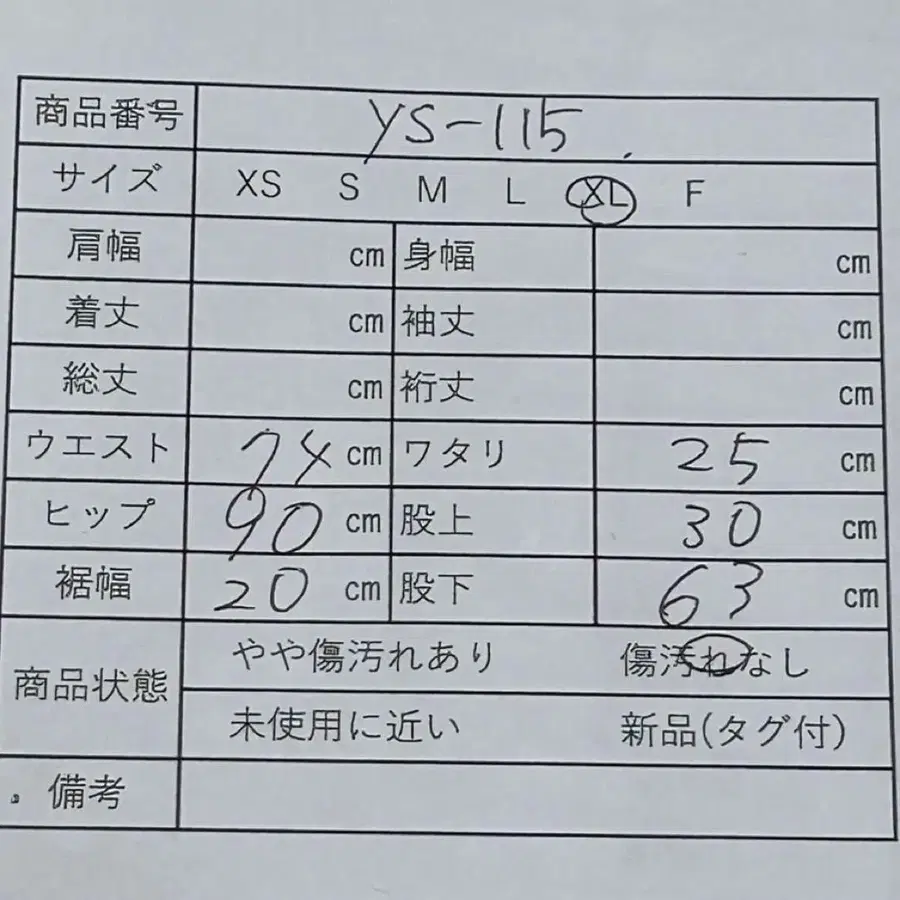 商品番号 YS-115
サイズ XS S M L XL F
肩幅 cm 身幅 cm
着丈 cm 袖丈 cm
総丈 cm 裄丈 cm
ウエスト 74 cm ワタリ 25 cm
ヒップ 90 cm 股上 30 cm
裾幅 20 cm 股下 63 cm
商品状態 やや傷汚れあり 傷汚れなし
未使用に近い 新品(タグ付)
備考